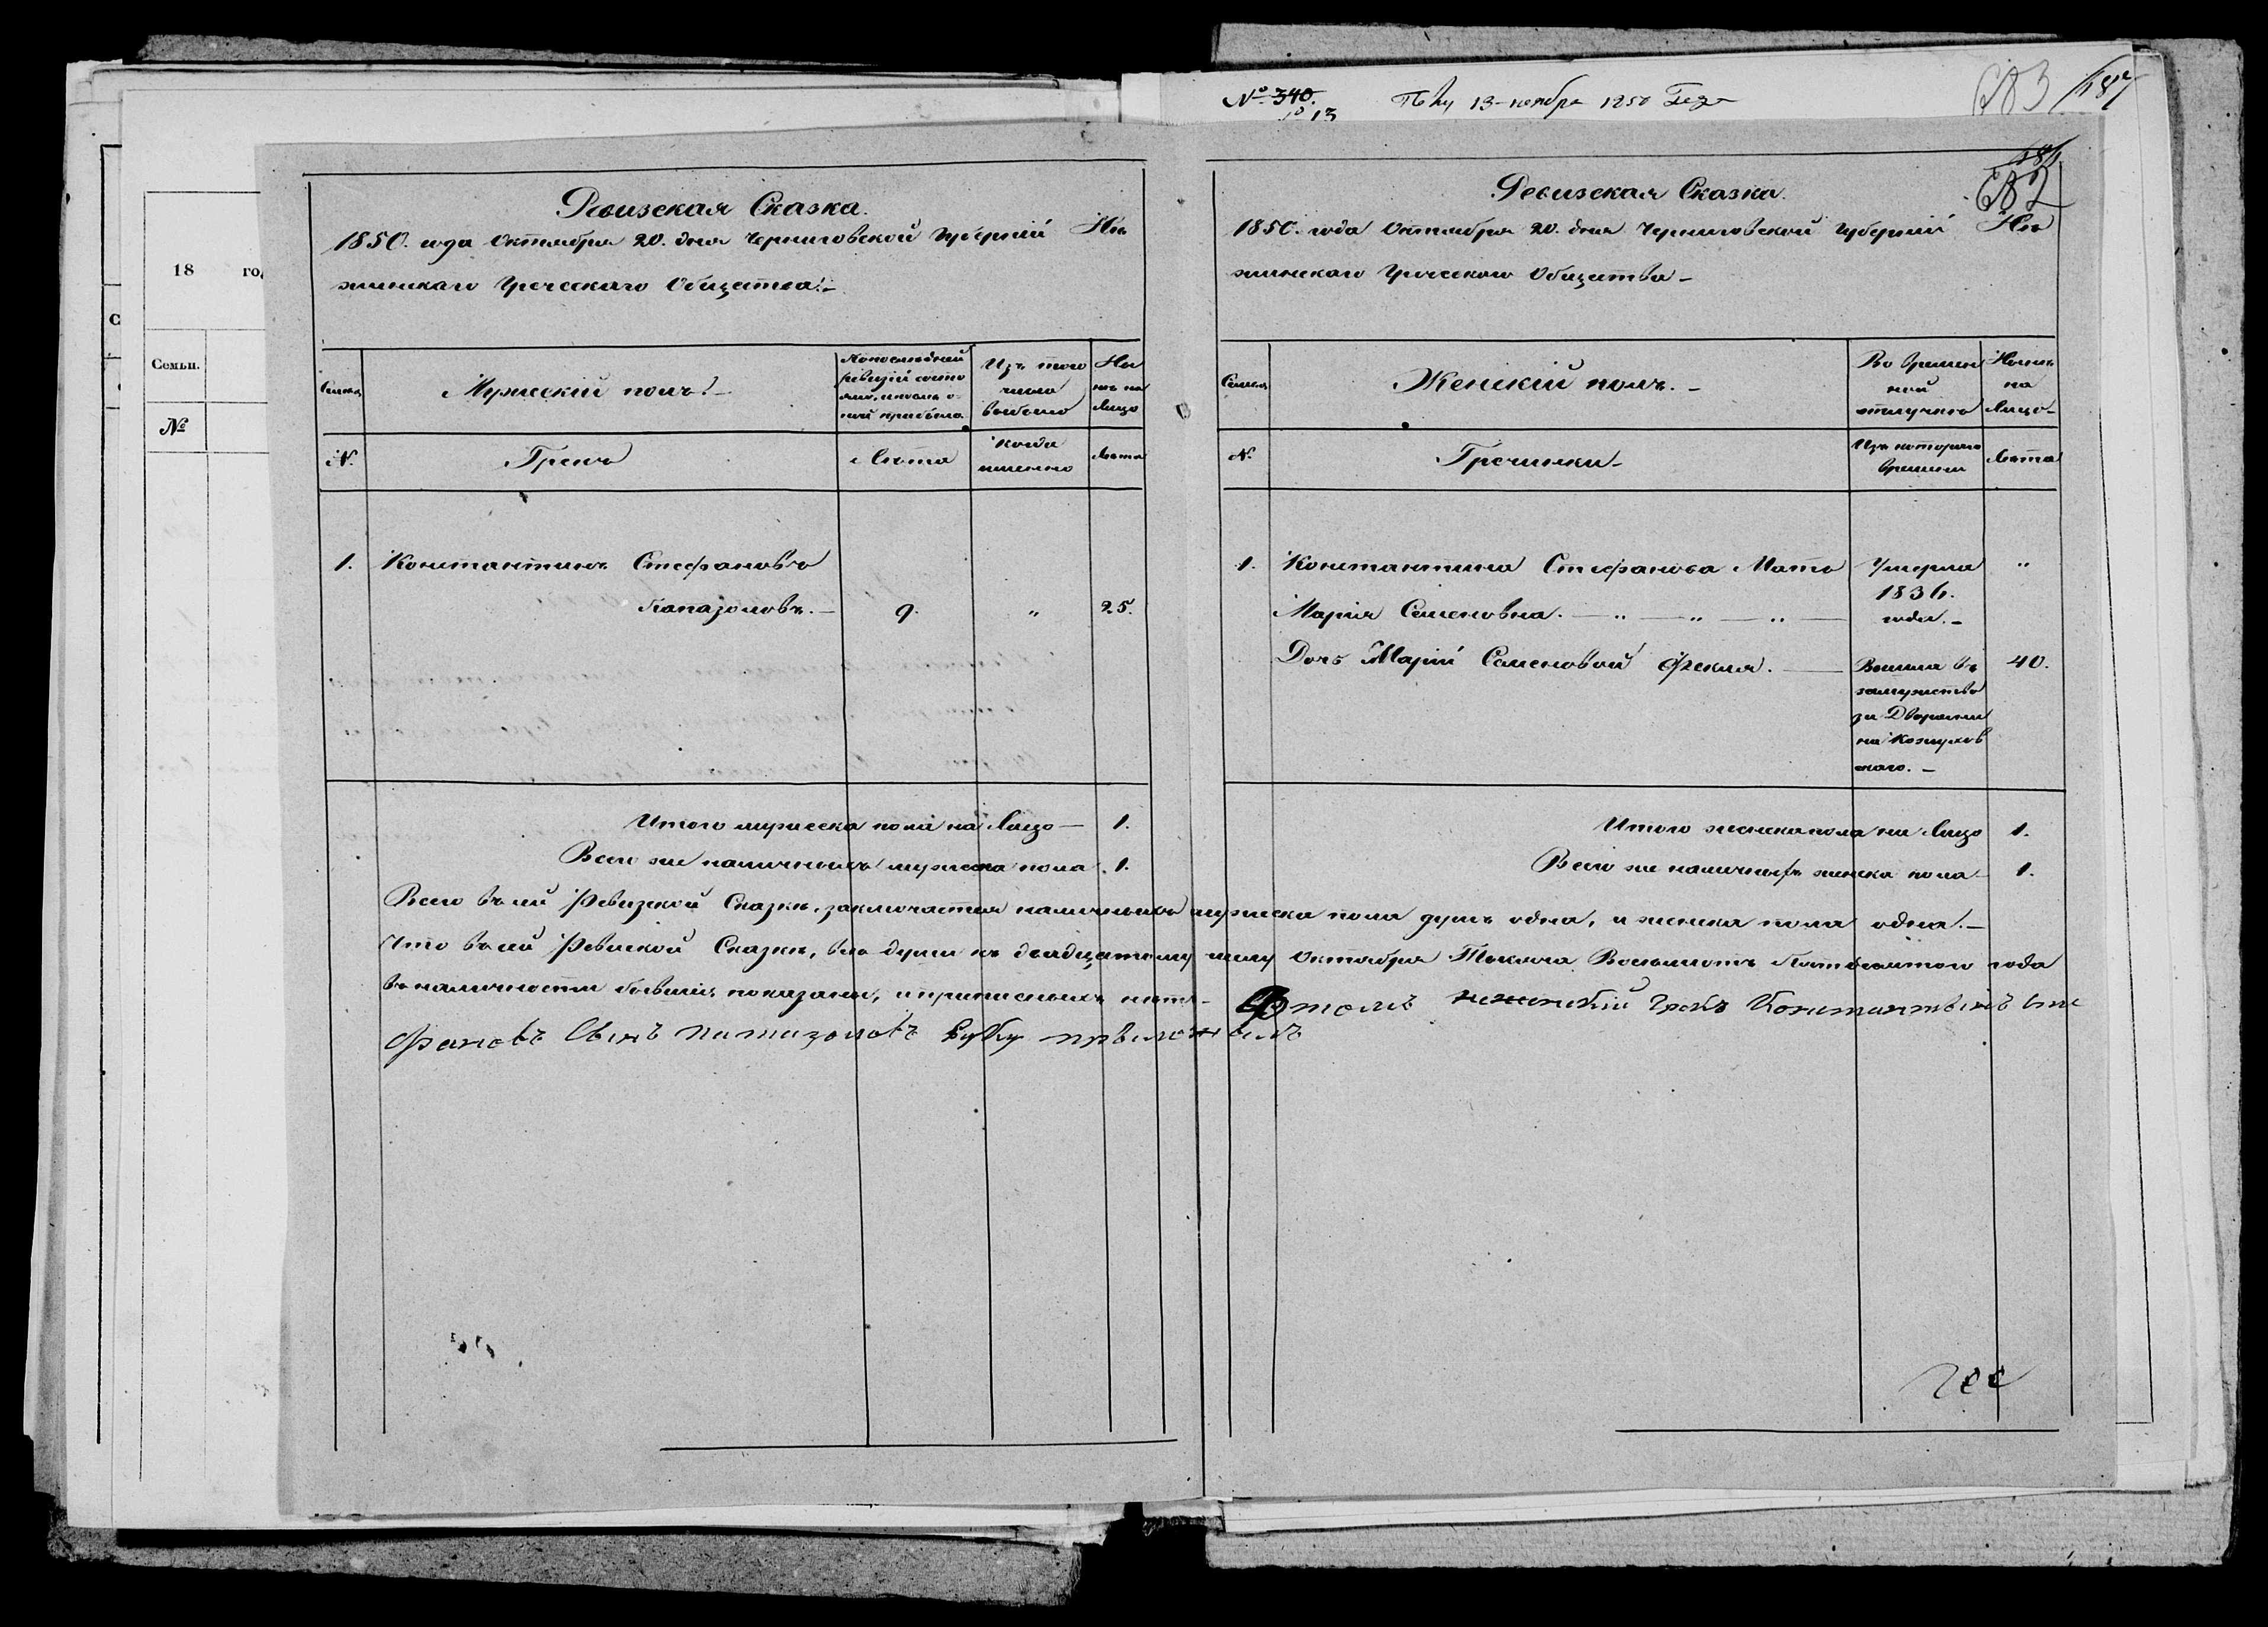 18 год
Семьи.
№
№ 340.
13 ноября 1850 Года
683
682
Ревизская Сказка.
1850. года Октября 20. дня Черниговской Губерніи Нѣ
жинскаго Греческаго Общества.
Семья
Мужескій полъ.
По последней ревизіи состояло, и после оной прибыло
Изъ того числа выбыло
Ны нѣ на Лицо
№.
Греки
Лѣта
Когда именно
Лѣта
1. Константинъ Стефановъ
Папазоловъ. — 9. „ 25.
Итого мужеска пола на Лицо — 1.
Всего же наличныхъ мужеска пола. 1.
Ревизская Сказка.
1850. года Октября 20. дня Черниговской Губерніи Нѣ
жинскаго Греческаго Общества —
Семья
Женскій полъ. —
Во времен ной отлучке
Нынѣ на Лицо —
№.
Гречинки —
Изъ котораго времени
Лѣта
1. Константина Стефанова Мать Умерла „
Марія Семеновна. — „ — „ — „ — 1836. года. —
Дочь Маріи Семеновой Фекла. — Вышла въ 40.
замужство
за Дворяни
на Кожухов
скаго. —
Итого женска пола на Лицо 1.
Всего же наличныхъ женска пола — 1.
Всего въ сей Ревизской Сказкѣ, заключается наличныхъ мужеска пола душъ одна, и женска пола одна. —
Что въ сей Ревиской Сказкѣ, все души къ двадцатому числу Октября Тысяча Восемьсотъ Пятьдесятого года
въ наличности бывшіе показаны, и прописныхъ нѣтъ — Втомъ неженскій Грекъ Константынъ Сте
фановъ Сынъ папазоловъ Руку прыложылъ